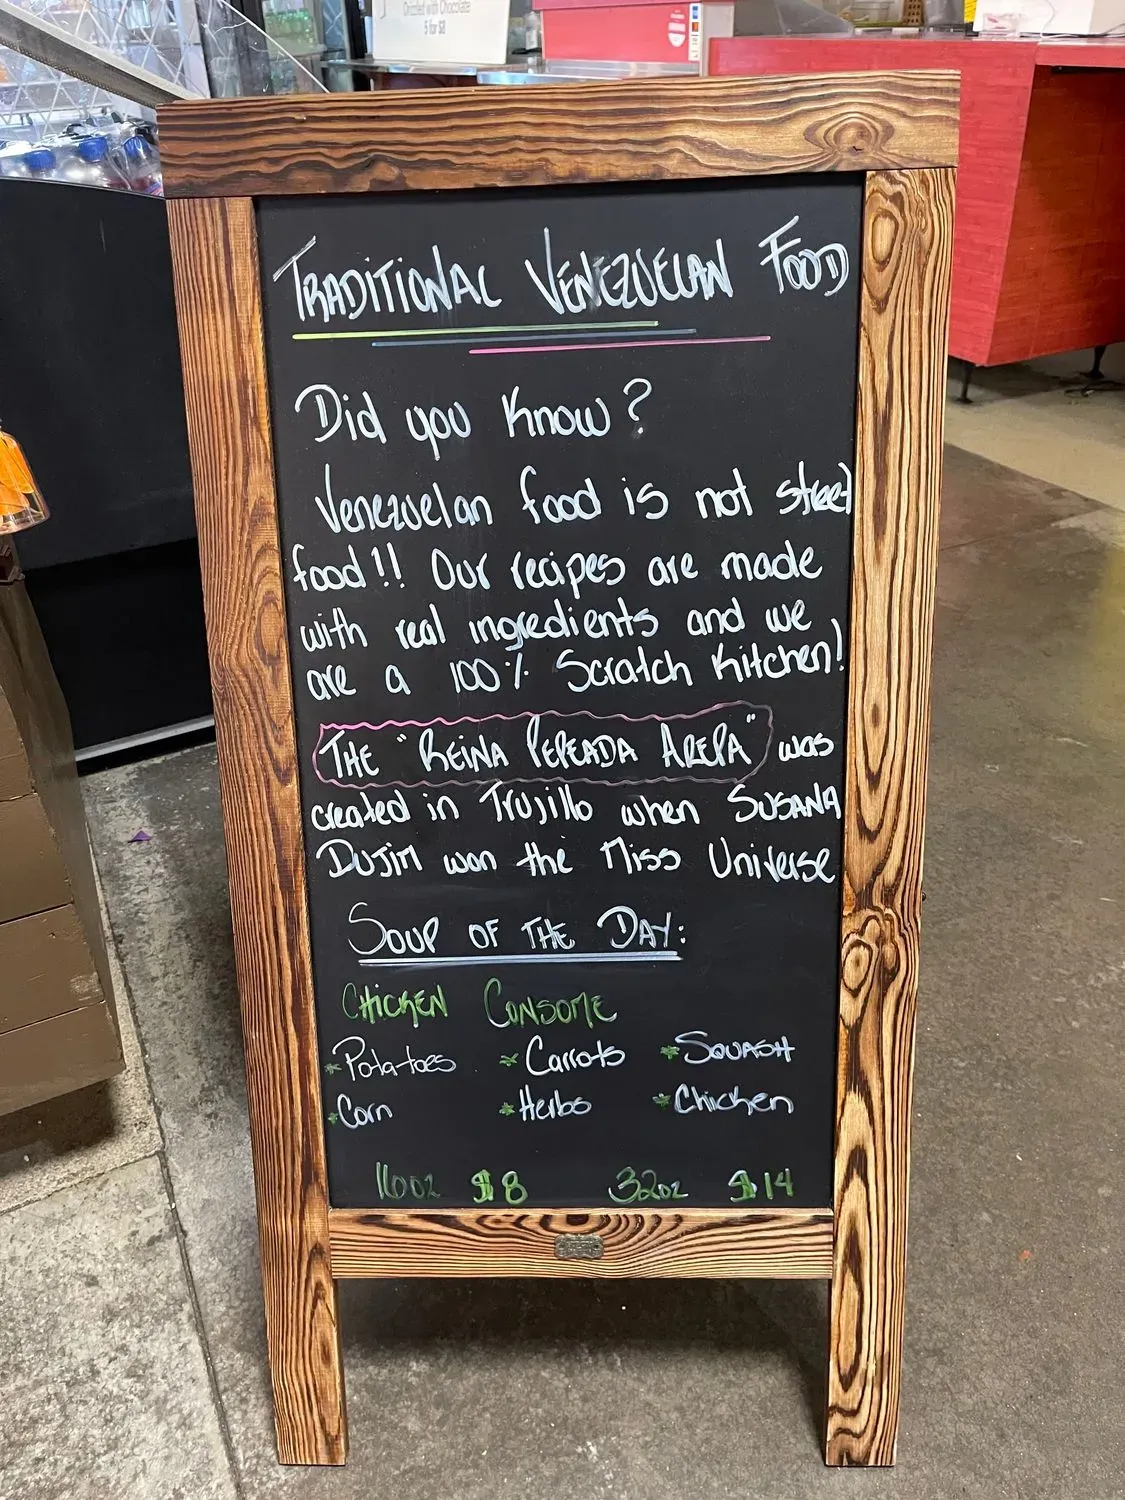 Drizzled with Chocolate
5 for $8
TRADITIONAL VENEZUELAN FOOD
Did you know?
Venezuelan food is not street
food!! Our recipes are made
with real ingredients and we
are a 100% Scratch Kitchen!
THE "REINA PEPEADA AREPA" was
created in Trujillo when SUSANA
DUJIM won the Miss Universe
SOUP OF THE DAY:
CHICKEN CONSOME
* Potatoes * Carrots * SQUASH
* Corn * Herbs * Chicken
16oz $8 32oz $14